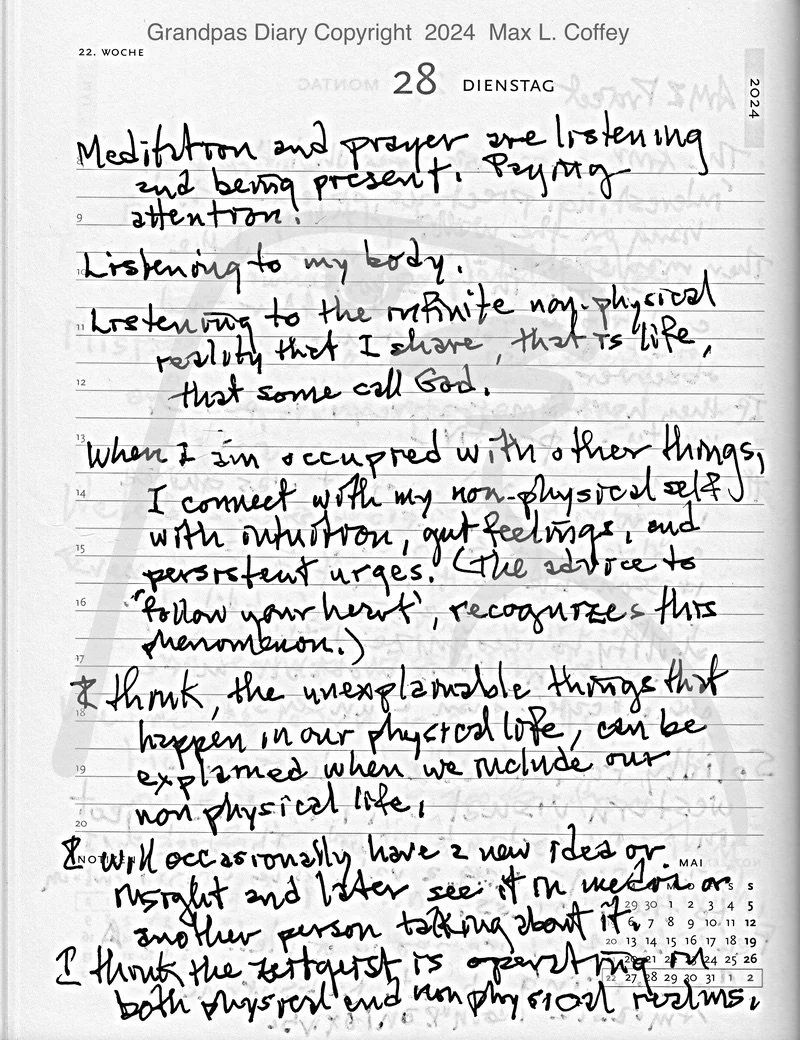 Grandpas Diary Copyright 2024 Max L. Coffey
22. WOCHE
28 DIENSTAG
2024
Meditation and prayer are listening
and being present. Paying
9
attention.
10
Listening to my body.
11
Listening to the infinite non-physical
reality that I share, that is life,
12
that some call God.
13
When I am occupied with other things,
14
I connect with my non-physical self
with intuition, gut feelings, and
15
persistent urges. (The advice to
16
"follow your heart", recognizes this
phenomenon.)
17
I think, the unexplainable things that
18
happen in our physical life, can be
19
explained when we include our
non physical life.
20
I will occasionally have a new idea or
NOTIZEN
MAI
insight and later see it in media or
S S
29 30 1 2 3 4 5
another person talking about it.
6 7 8 9 10 11 12
20 13 14 15 16 17 18 19
I think the zeitgeist is operating in
23 24 25 26
22 27 28 29 30 31 1 2
both physical and non physical realms.